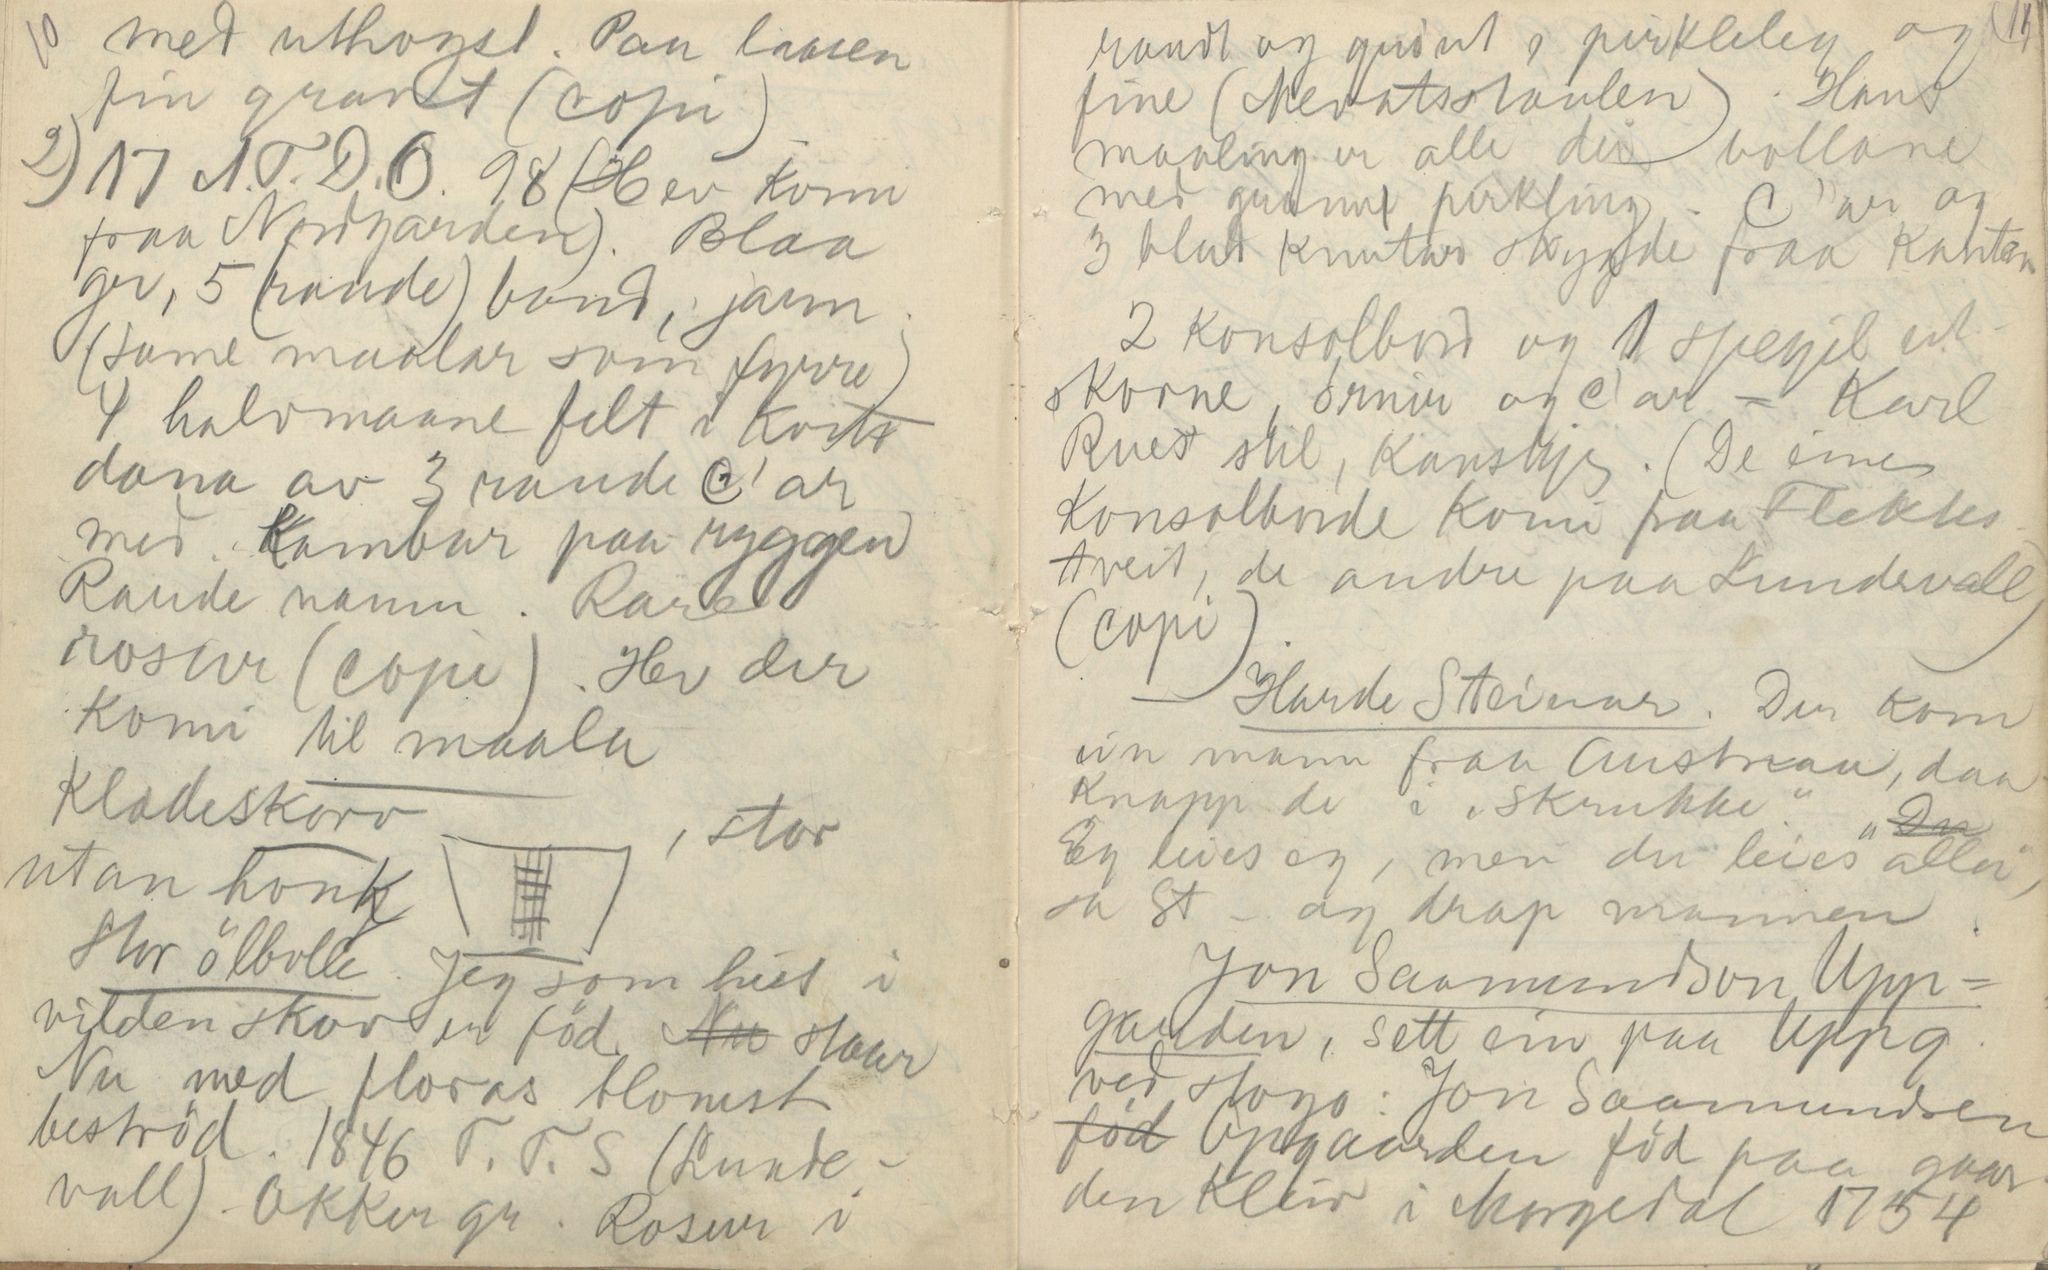 10
med uthogst. Paa laasen
fin gravst (copi)
2) 17 N.T.D.O. 98 (Hev komi
fraa Nordgarden). Blaa
gr, 5 (raude) band, jarn
(same maalar som fyrre)
4 halvmaane felt i kvits
dana av 3 raude C'ar
med kambar paa ryggen
Raude namn. Rare
rosur (copi). Hev der
komi til maala
Kladeskorv , stor
utan honk
Stor ölbolle. Jeg som hist i
vilden skov er föd. Nu staar
Nu med floras blomst
beströd. 1846 T.T.S (Lunde-
vall) Okker gr. Rosur i
11
raudt og grönt, pirkleleg og
fine (Nevatsstaulen). Hans
maaling er alle dei bollane
med grannt pirkling. C'ar og
3 blad knutar skygde fraa kantan
2 Konsolbord og 1 spegjil ut-
skorne, örnir og C'ar = Karl
Rues stil, kanskje. (De eine
Konsolborde komi fraa Flekkes-
tveit, de andre paa Lundevall)
(copi).
— Harde Steinar. Der kom
ein mann fraa Austmaa, daa
knapp de i "skrukke". "Du
Eg leies eg, men du leies aller",
sa St – og drap mannen.
Jon Saamundson Upp=
garden, sett ein paa Uppg.
ved stogo: Jon Saamundsen
föd Opgaarden föd paa gaar-
den Kleiv i Morgedal 1754